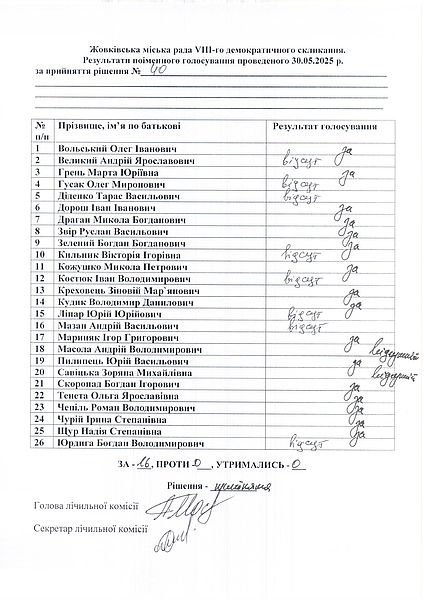 Жовківська міська рада VIII-го демократичного скликання.
Результати поіменного голосування проведеного 30.05.2025 р.
за прийняття рішення № 40
№ п/п Прізвище, ім’я по батькові Результат голосування
1 Вольський Олег Іванович за
2 Великий Андрій Ярославович відсут
3 Грень Марта Юріївна за
4 Гусак Олег Миронович відсут
5 Діденко Тарас Васильович відсут
6 Дорош Іван Іванович за
7 Драган Микола Богданович за
8 Звір Руслан Васильович за
9 Зелений Богдан Богданович за
10 Кильник Вікторія Ігорівна відсут
11 Кожушко Микола Петрович за
12 Костюк Іван Володимирович відсут
13 Креховець Зіновій Мар`янович за
14 Кудик Володимир Данилович за
15 Ліпар Юрій Юрійович відсут
16 Мазан Андрій Васильович відсут
17 Мариняк Ігор Григорович за
18 Масола Андрій Володимирович відсутній
19 Пилипець Юрій Васильович за
20 Савіцька Зоряна Михайлівна відсутній
21 Скоропад Богдан Ігорович за
22 Тенета Ольга Ярославівна за
23 Чепіль Роман Володимирович за
24 Чурій Ірина Степанівна за
25 Щур Надія Степанівна за
26 Юрдига Богдан Володимирович відсут
ЗА - 16, ПРОТИ 0, УТРИМАЛИСЬ - 0
Рішення - прийняття
Голова лічильної комісії
Секретар лічильної комісії